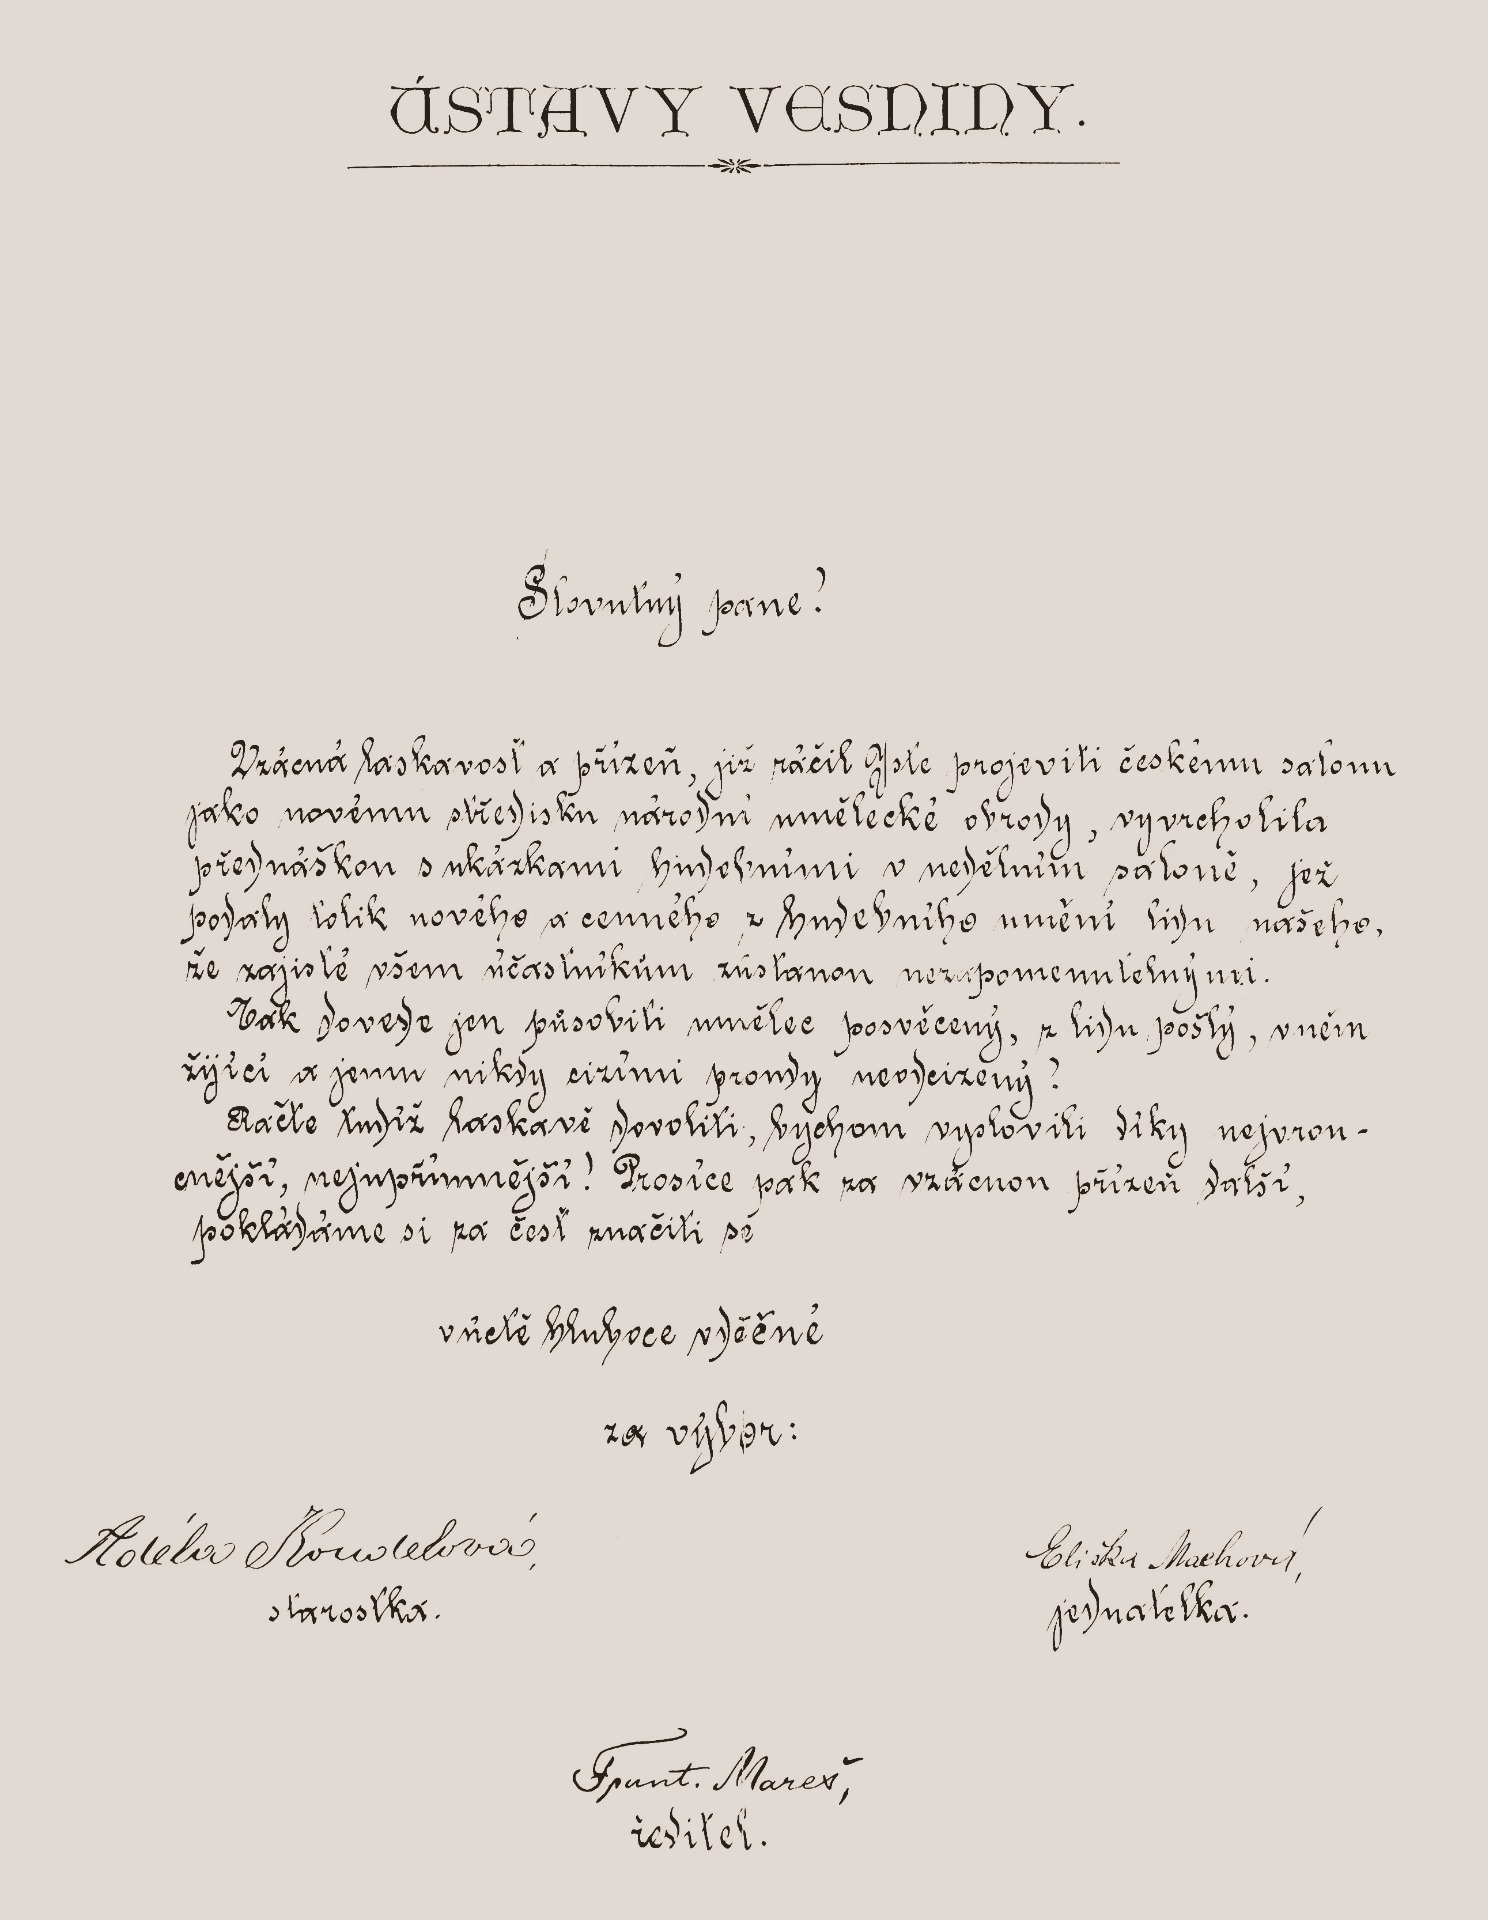 ÚSTAVY VESNINY.
Slovutný pane!
Vzácná laskavosť a přízeň, již ráčil Jste projeviti českému salonu
jako novému středisku národní umělecké obrody, vyvrcholila
přednáškou s ukázkami hudebními v nedělním saloně, jež
podaly tolik nového a cenného z hudebního umění lidu našeho,
že zajisté všem účastníkům zůstanou nezapomenutelnými.
Tak dovede jen působiti umělec posvěcený, z lidu pošlý, v něm
žijící a jemu nikdy cizími proudy neodcizený!
Račte tudíž laskavě dovoliti, bychom vyslovili díky nejvrou-
cnější, nejupřímnější! Prosíce pak za vzácnou přízeň další,
pokládáme si za česť značiti se
v úctě hluboce vděčné
za výbor:
Adéla Koudelová,
starostka.
Eliška Machová,
jednatelka.
Frant. Mareš,
ředitel.